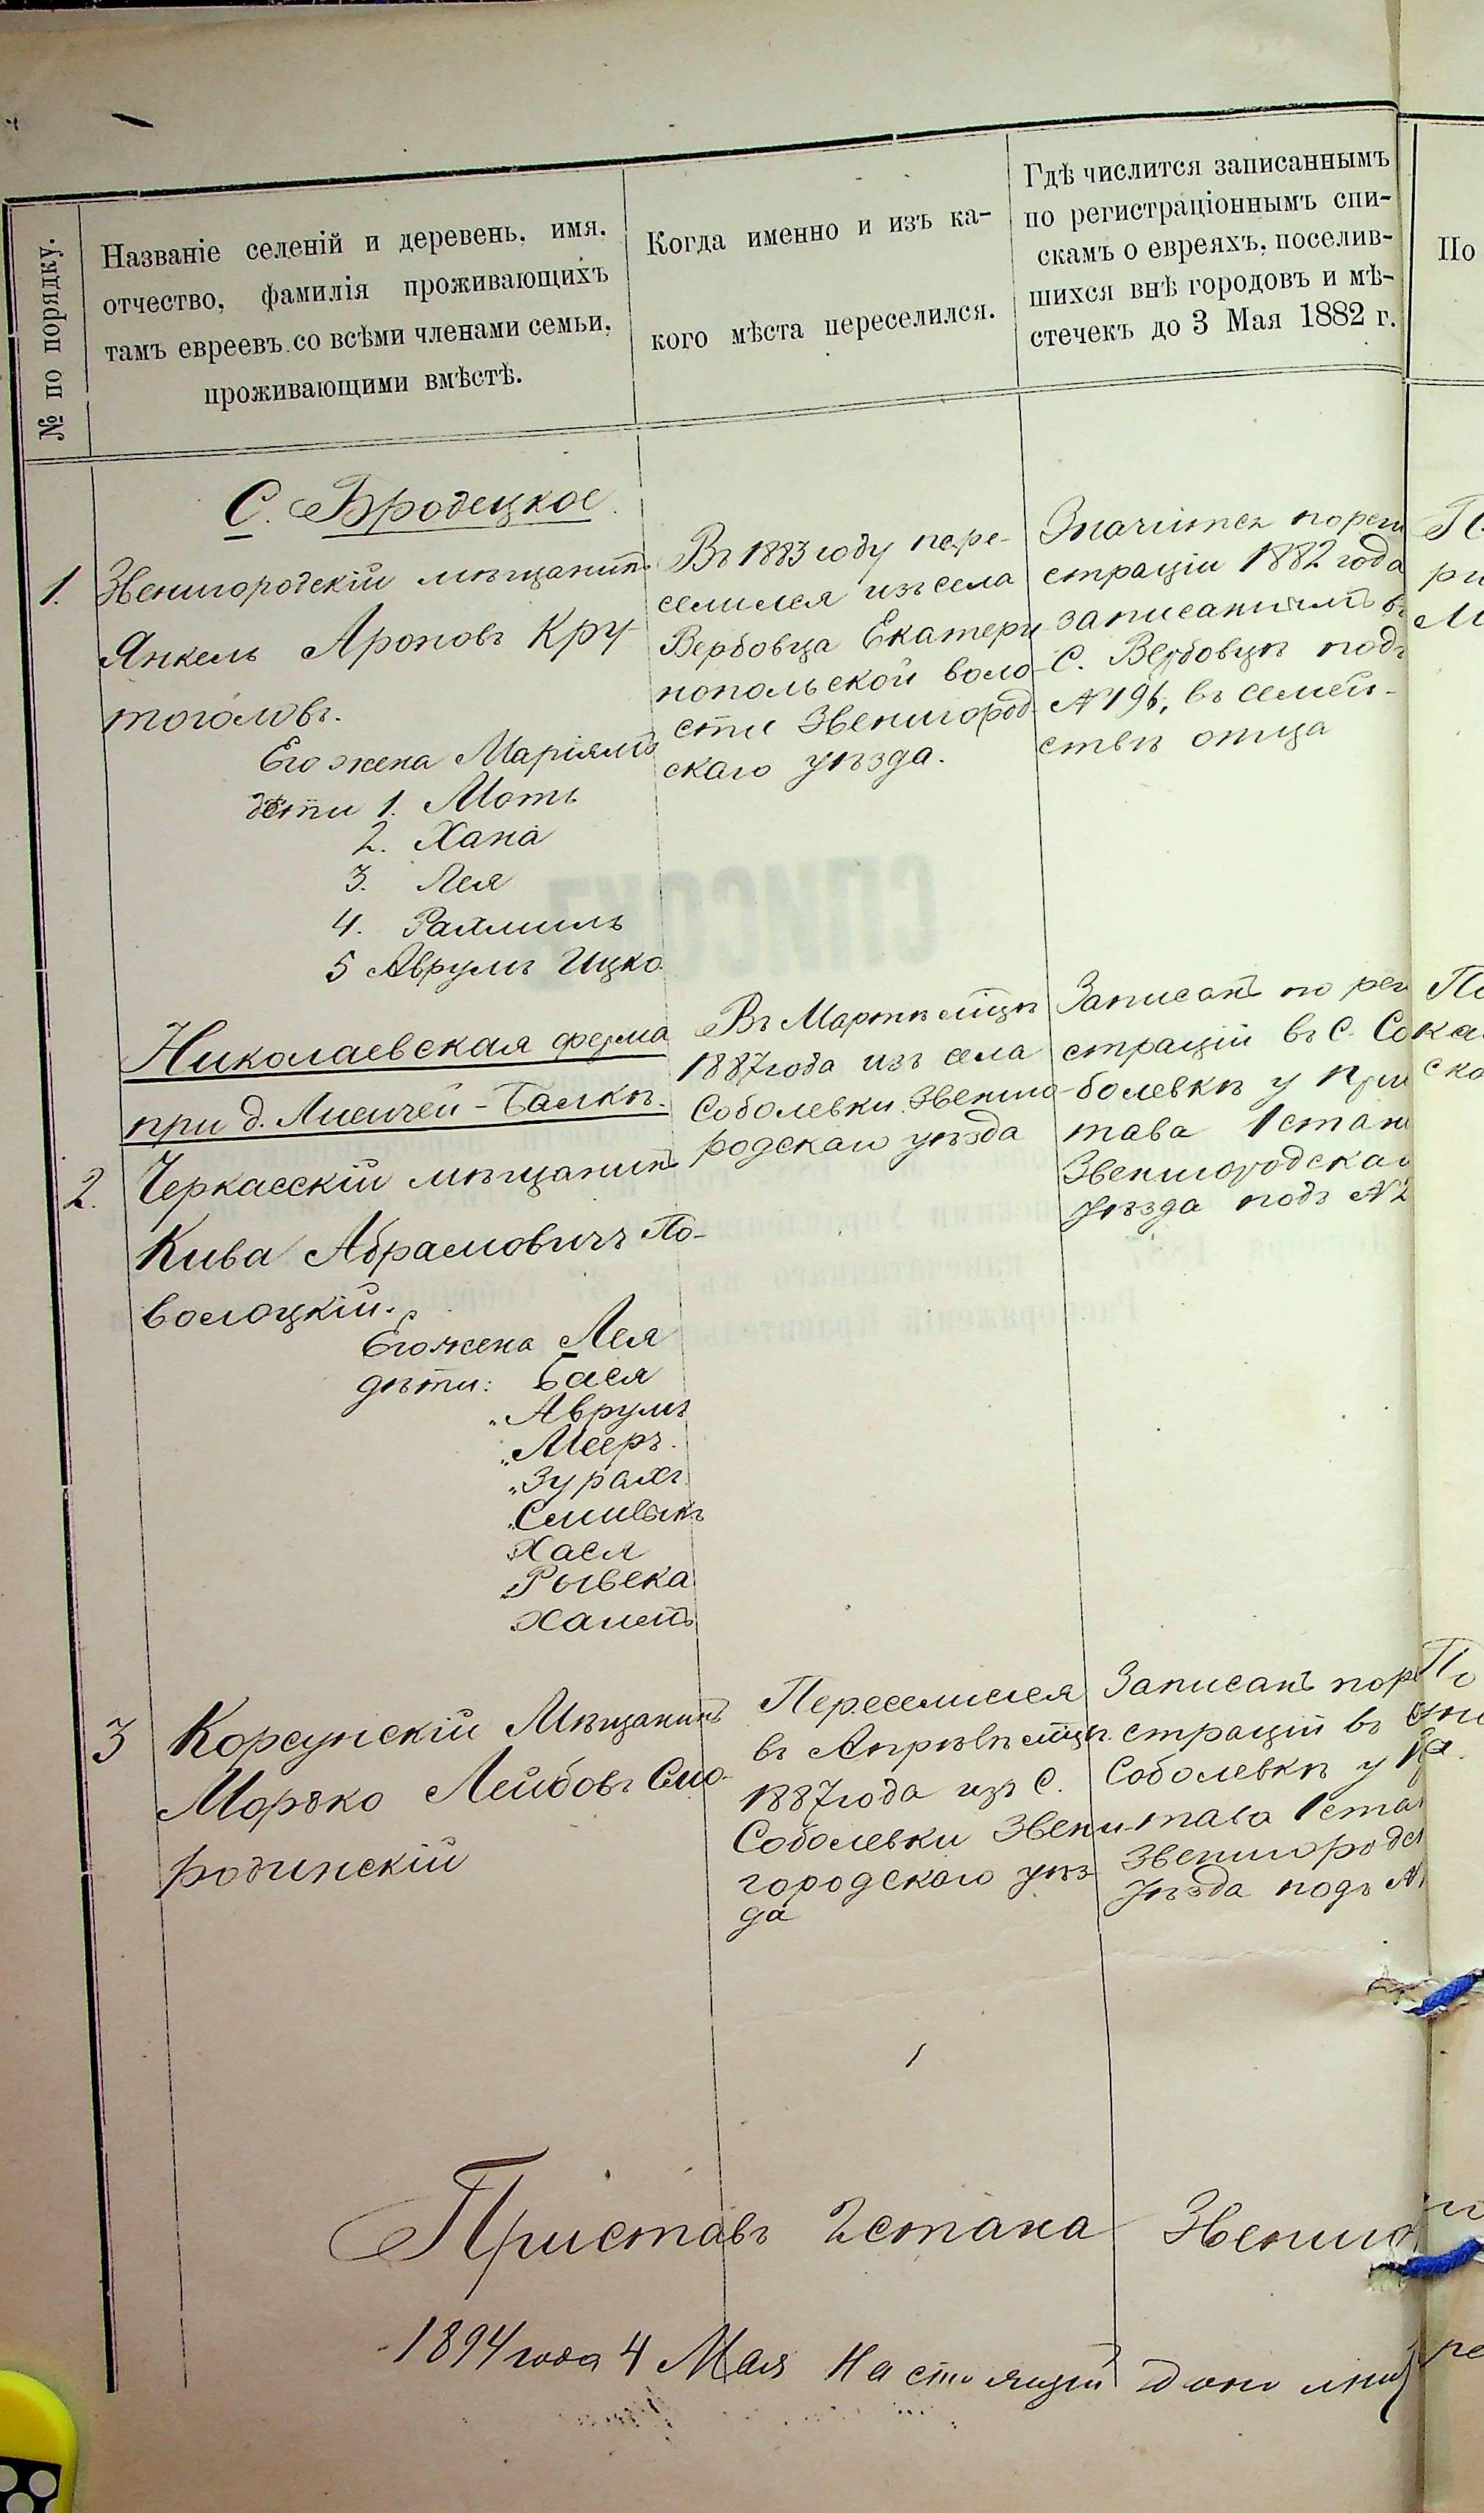 № по порядку.
Названіе селеній и деревень, имя,
отчество, фамилія проживающихъ
тамъ евреевъ со всѣми членами семьи,
проживающими вмѣстѣ.
Когда именно и изъ ка-
кого мѣста переселился.
Гдѣ числится записаннымъ
по регистраціоннымъ спи-
скамъ о евреяхъ, поселив-
шихся внѣ городовъ и мѣ-
стечекъ до 3 Мая 1882 г.
По
С. Бродецкое
1.
Звенигородскій мѣщанинъ
Янкель Ароновъ Кру
тоголовъ.
Его жена Маріямъ
дѣти 1. Моть
2. Хана
3. Лея
4. Рахмиль
5 Аврумъ Ицко
Въ 1883 году пере-
селился изъ села
Вербовца Екатери
нопольской воло
сти Звенигород
скаго уѣзда.
Значится по реги
страціи 1882 года
записаннымъ въ
С. Вербовцѣ подъ
№ 196, въ семей-
ствѣ отца
Николаевская ферма
при д. Лисичей-Балкѣ.
2.
Черкасскій мѣщанинъ
Кива Абрамовичъ По-
волоцкій.
Его жена Лея
дѣти: Бася
„ Аврумъ
„ Мееръ.
„ Зурахъ
„
„ Хася
„ Рывека
„
Въ Мартѣ мѣсцѣ
1887 года изъ села
Соболевки Звениго
родскаго уѣзда
Записанъ по реги
страціи въ С. Со
болевкѣ у при
тава 1 стана
Звенигородскаго
Уѣзда подъ №2
3
Корсунскій Мѣщанинъ
Моръко Лейбовъ Смо-
родинскій
Переселился
въ Апрѣлѣ мѣсцѣ
1887 года изъ С.
Соболевки Звени
городскаго уѣз
да
Записанъ по ре
страціи въ
Соболевкѣ у
тава 1 ста
Звенигородск
Уѣзда подъ №
Приставъ 2 стана Звениго
1894 года 4 Мая Настоящій